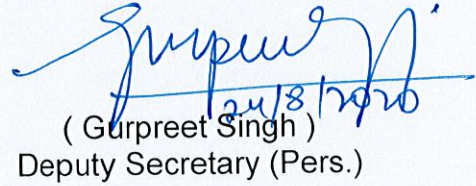 Gurpreet
24/8/2020
( Gurpreet Singh )
Deputy Secretary (Pers.)